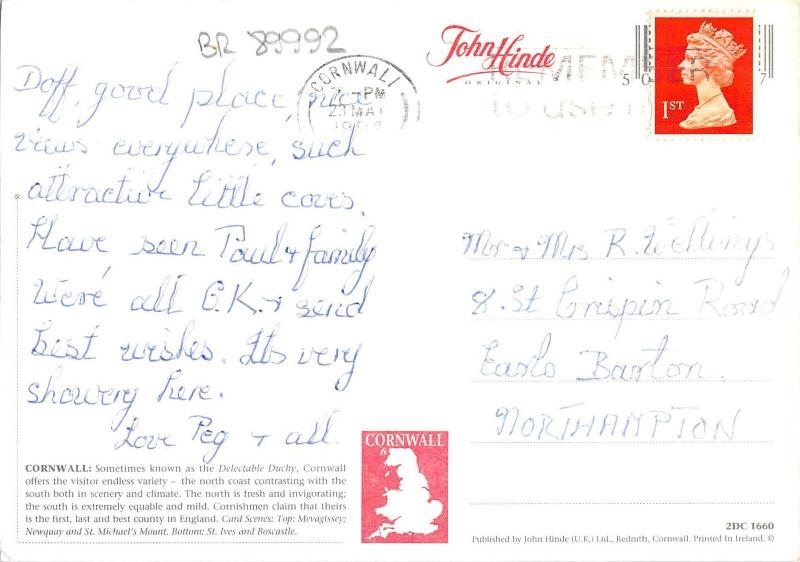 BR 89992
John Hinde
ORIGINAL
CORNWALL
PM
23 MAY
REMEMBER
to use
50 7
1ST
Doff, good place, nice
views everywhere, such
attractive little coves.
Have seen Paul & family
We're all O.K. & send
best wishes. Its very
showery here.
Love Peg & all.
Mr & Mrs R.
8. St Crispin Road
Earls Barton.
NORTHAMPTON
CORNWALL
CORNWALL: Sometimes known as the Delectable Duchy, Cornwall
offers the visitor endless variety – the north coast contrasting with the
south both in scenery and climate. The north is fresh and invigorating;
the south is extremely equable and mild. Cornishmen claim that theirs
is the first, last and best county in England. Card Scenes: Top: Mevagissey;
Newquay and St. Michael's Mount. Bottom: St. Ives and Boscastle.
2DC 1660
Published by John Hinde (U.K.) Ltd., Redruth, Cornwall. Printed In Ireland. ©